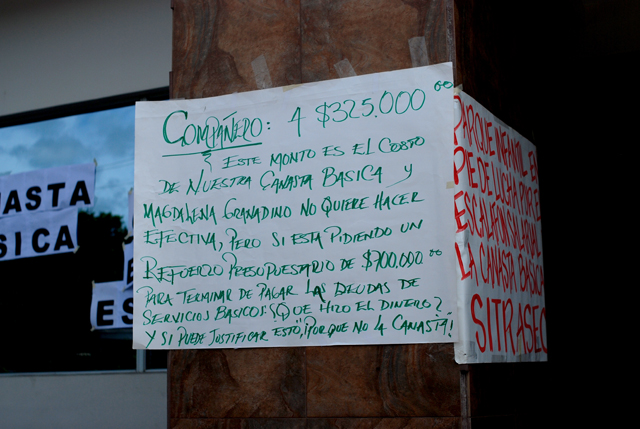 COMPAÑERO: 4 $325.000 ºº
ESTE MONTO ES EL COSTO
DE NUESTRA CANASTA BASICA Y
MAGDALENA GRANADINO NO QUIERE HACER
EFECTIVA, PERO SI ESTA PIDIENDO UN
REFUERZO PRESUPUESTARIO DE $700,000 ºº
PARA TERMINAR DE PAGAR LAS DEUDAS DE
SERVICIOS BASICOS: ¿QUE HIZO EL DINERO?
Y SI PUEDE JUSTIFICAR ESTO, ¡PORQUE NO LA CANASTA!
PARQUE INFANTIL EN
PIE DE LUCHA POR EL
ESCALAFON SALARIAL Y
LA CANASTA BASICA
SITRASEC
ASTA
SICA
ES